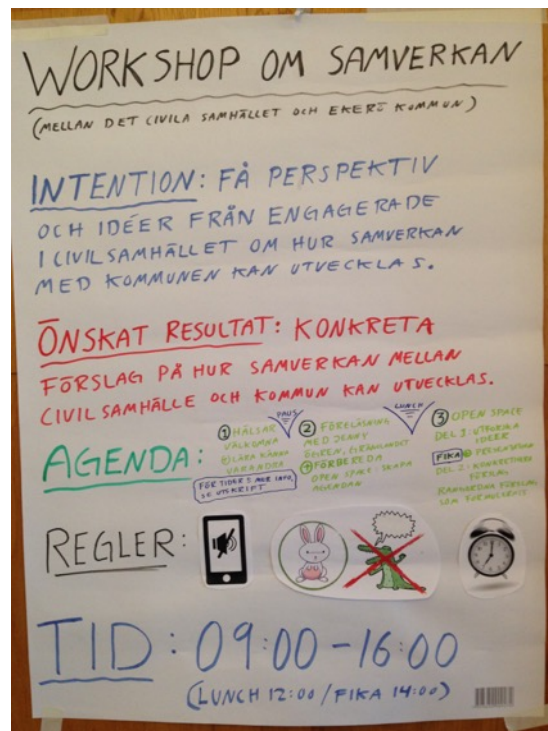 WORKSHOP OM SAMVERKAN
(MELLAN DET CIVILA SAMHÄLLET OCH EKERÖ KOMMUN)
INTENTION: FÅ PERSPEKTIV
OCH IDÉER FRÅN ENGAGERADE
I CIVILSAMHÄLLET OM HUR SAMVERKAN
MED KOMMUNEN KAN UTVECKLAS.
ÖNSKAT RESULTAT: KONKRETA
FÖRSLAG PÅ HUR SAMVERKAN MELLAN
CIVILSAMHÄLLE OCH KOMMUN KAN UTVECKLAS.
AGENDA:
1 HÄLSAR
VÄLKOMNA
LÄRA KÄNNA
VARANDRA
PAUS
FÖR TIDER & MER INFO,
SE UTSKRIFT
2 FÖRELÄSNING
MED JENNY
+ FÖRBEREDA
OPEN SPACE: SKAPA
AGENDAN
LUNCH
3 OPEN SPACE
DEL 1: UTFORSKA
IDÉER
FIKA
DEL 2: KONKRETISERA
FÖRSLAG
SOM FORMULERATS
REGLER:
TID: 09:00-16:00
(LUNCH 12:00 / FIKA 14:00)